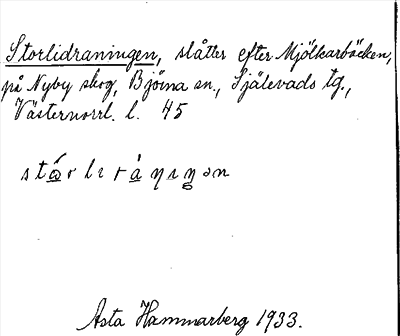 Storlidraningen, slåtter efter Mjölkarbäcken,
på Nyby skog, Bjärna sn., Själevads tg.,
Västernorrl. l. 45
Asta Hammarberg 1933.